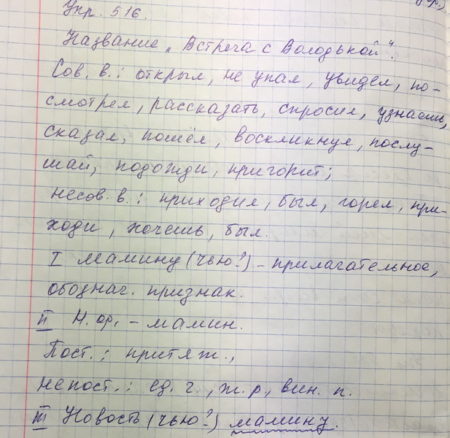 Упр. 516.
Название „Встреча с Володькой“.
Сов. в.: открыл, не упал, увидел, по-
смотрел, рассказать, спросил, узнаешь,
сказал, пошёл, воскликнул, послу-
шай, подожди, пригорит;
несов. в.: приходил, был, горел, при-
ходи, хочешь, был.
I мамину (чью?) - прилагательное,
обознач. признак.
II Н. ф. - мамин.
Пост.: притяж.,
непост.: ед. ч., ж. р, вин. п.
III Новость (чью?) мамину.